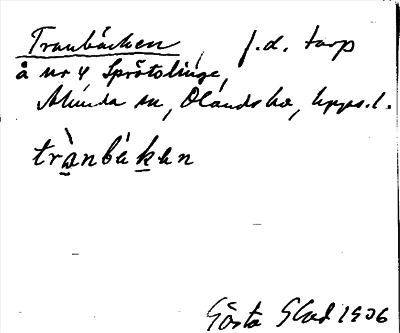 Tranbäcken, f.d. torp
å nr 4 Sprötslinge,
Alunda sn, Olands hd, Upps. l.
trànbáken
Gösta Blad 1906